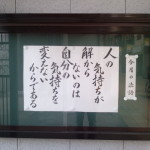 今月の法語
人の
気持ちが
解からないのは
自分の
気持ちを
変えない
からである